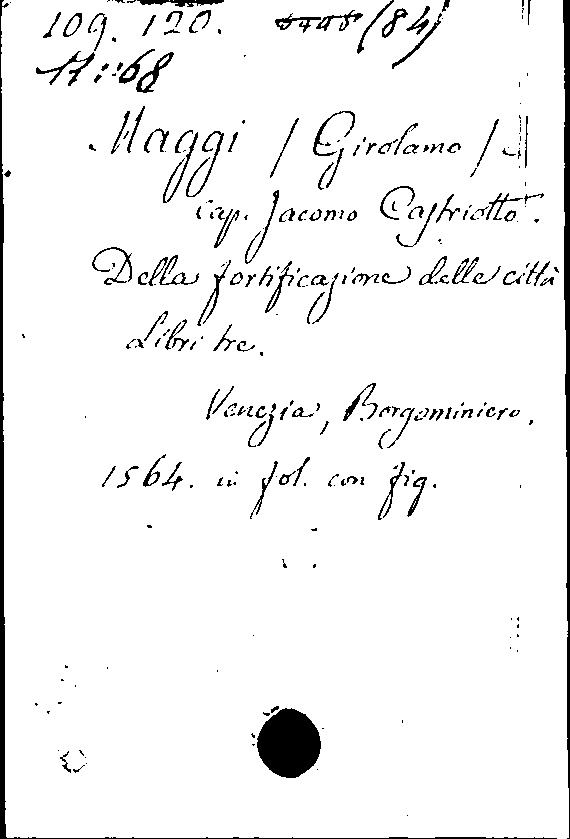 109. 120. (84)
17::68
Maggi / Girolamo / e
cap. Jacomo Castriotto.
Della fortificazione delle città
Libri tre.
Venezia, Borgominiero.
1564. in fol. con fig.